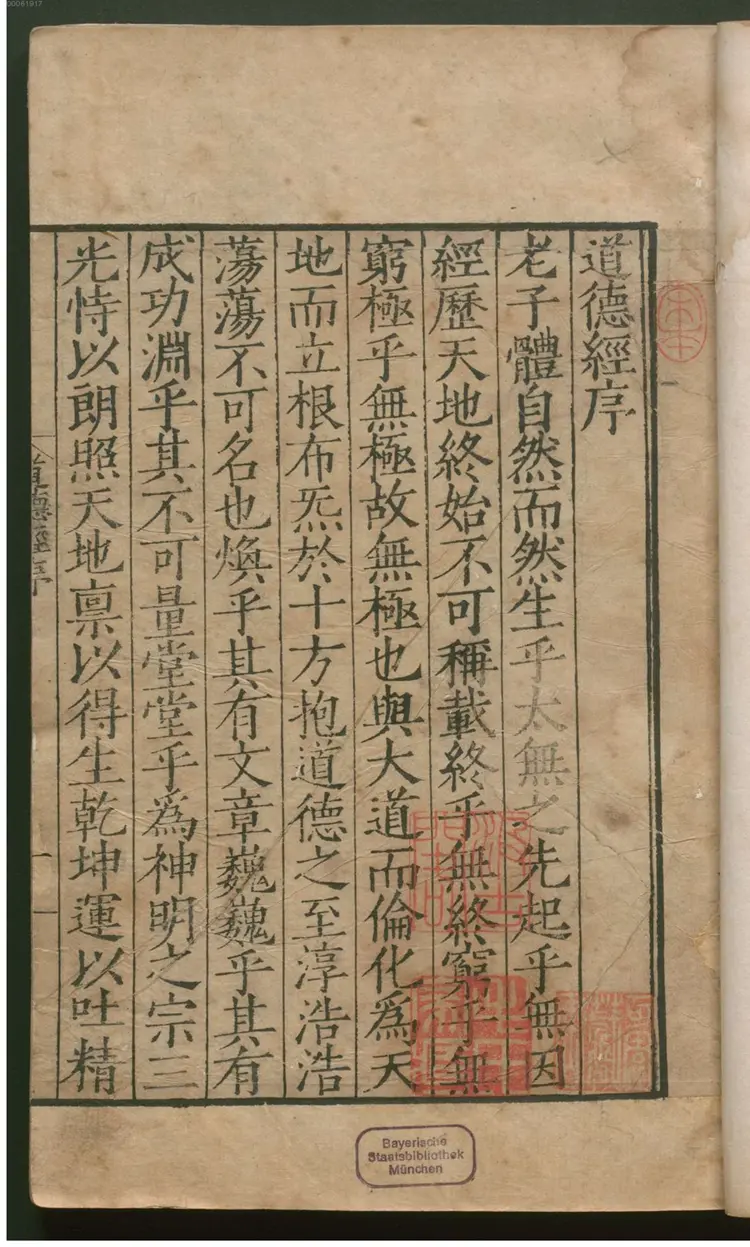 00061917
道德經序
老子體自然而然生乎太無之先起乎無因
經歷天地終始不可稱載終乎無終窮乎無
窮極乎無極故無極也與大道而倫化爲天
地而立根布炁於十方抱道德之至淳浩浩
蕩蕩不可名也煥乎其有文章巍巍乎其有
成功淵乎其不可量堂堂乎爲神明之宗三
光恃以朗照天地禀以得生乾坤運以吐精
道德經序
一
Bayerische
Staatsbibliothek
München